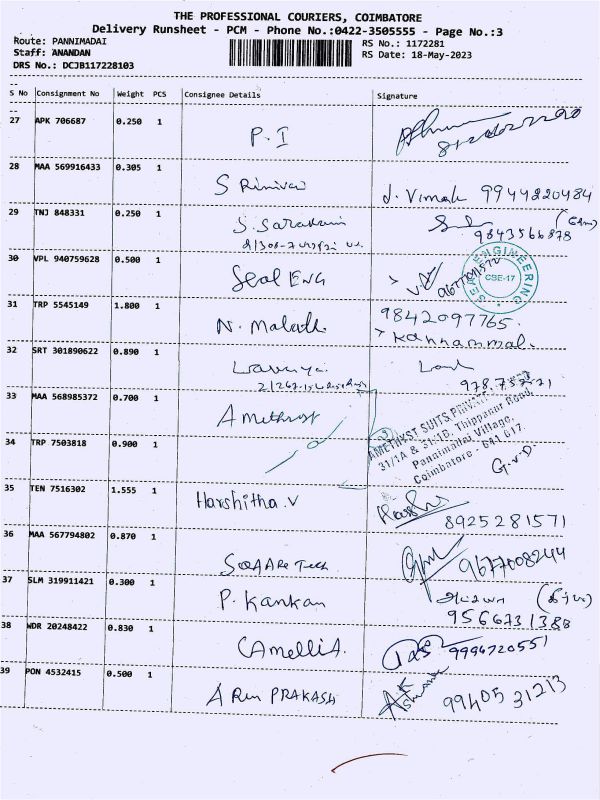 THE PROFESSIONAL COURIERS, COIMBATORE
Delivery Runsheet - PCM - Phone No.:0422-3505555 - Page No.:3
Route: PANNIMADAI
RS No.: 1172281
Staff: ANANDAN
RS Date: 18-May-2023
DRS No.: DCJB117228103
S No Consignment No Weight PCS Consignee Details Signature
27 APK 706687 0.250 1 P.I
28 MAA 569916433 0.305 1 S Rinivas J. Vimal 9944220484
29 TNJ 848331 0.250 1 S. 9843566878
30 VPL 940759628 0.500 1 Seal ENG
SEAL ENGINEERING
CBE-17
31 TRP 5545149 1.800 1 N. 9842097765.
Kannammal.
32 SRT 301890622 0.890 1 Lavanya.
33 MAA 568985372 0.700 1 Amethyst
AMETHYST SUITS PRIVATE
31/1A & 31/1B, Thippanur Road,
Pannimadai Village,
Coimbatore - 641 017.
34 TRP 7503818 0.900 1 G.V.D
35 TEN 7516302 1.555 1 Harshitha.V
8925281571
36 MAA 567794802 0.870 1 SQAARe Tech 9677008244
37 SLM 319911421 0.300 1 P. Kankan
9566731388
38 WDR 20248422 0.830 1 CAmelliA. 9994720551
39 PON 4532415 0.500 1 ARUN PRAKASH 99405 31213